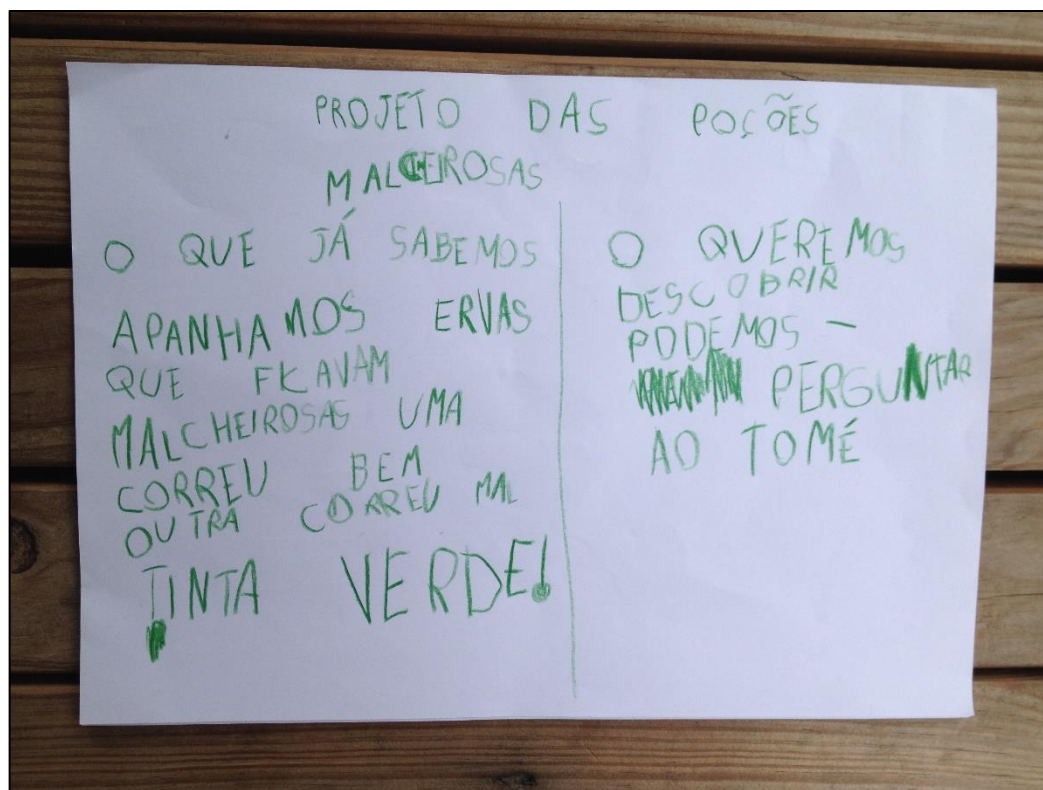 PROJETO DAS POÇÕES
MALCHEIROSAS
O QUE JÁ SABEMOS
APANHAMOS ERVAS
QUE FICAVAM
MALCHEIROSAS UMA
CORREU BEM
OUTRA CORREU MAL
TINTA VERDE!
O QUEREMOS
DESCOBRIR
PODEMOS –
PERGUNTAR
AO TOMÉ